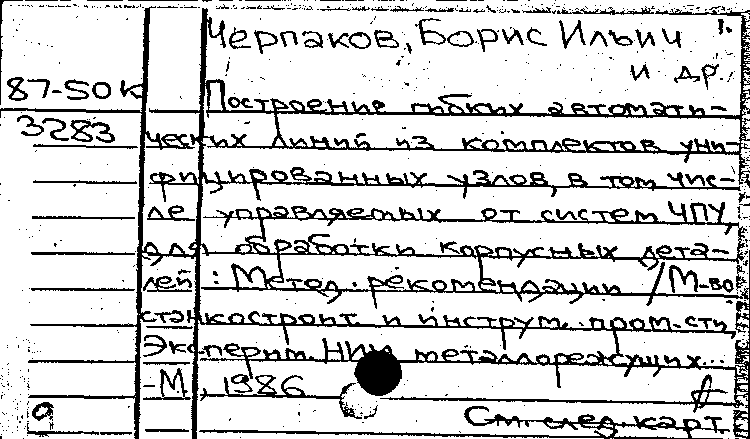 Черпаков, Борис Ильич 1.
и др.
87-50К Построение гибких автомати-
3283 ческих линий из комплектов уни-
фицированных узлов, в том чис-
ле управляемых от систем ЧПУ,
для обработки корпусных дета-
лей : Метод. рекомендации / М-во
станкостроит. и инструм. пром-сти,
Эксперим. НИИ металлорежущих...
-М., 1986
9 См. след. карт.